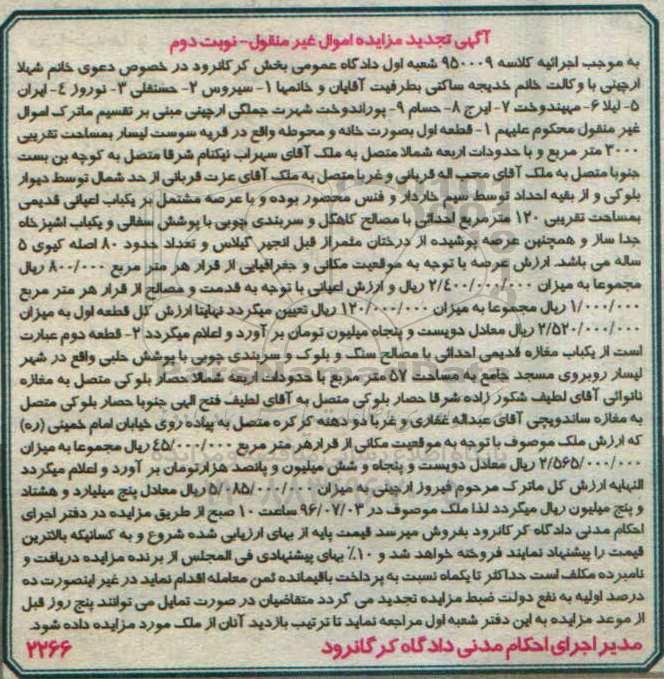 آگهی تجدید مزایده اموال غیر منقول- نوبت دوم
به موجب اجرائیه کلاسه ۹۵۰۰۰۹ شعبه اول دادگاه عمومی بخش کرگانرود در خصوص دعوی خانم شهلا
ارچینی با وکالت خانم خدیجه ساکنی بطرفیت آقایان و خانمها ۱- سیروس ۲- حسنقلی ۳- نوروز ٤- ایران
۵- لیلا ۶- مهیندوخت ۷- ایرج ۸- حسام ۹- پوراندوخت شهرت جملگی ارچینی مبنی بر تقسیم ماترک اموال
غیر منقول محکوم علیهم ۱- قطعه اول بصورت خانه و محوطه واقع در قریه سوست لیسار بمساحت تقریبی
۳۰۰۰ متر مربع و با حدودات اربعه شمالا متصل به ملک آقای سهراب نیکنام شرقا متصل به کوچه بن بست
جنوبا متصل به ملک آقای محب اله قربانی و غربا متصل به ملک آقای عزت قربانی از حد شمال توسط دیوار
بلوکی و از بقیه احداد توسط سیم خاردار و فنس محصور بوده و با عرصه مشتمل بر یکباب اعیانی قدیمی
بمساحت تقریبی ۱۲۰ مترمربع احداثی با مصالح کاهگل و سربندی چوبی با پوشش سفالی و یکباب اشپزخاه
جدا ساز و همچنین عرصه پوشیده از درختان مثمراز قبل انجیر گیلاس و تعداد حدود ۸۰ اصله کیوی ۵
ساله می باشد. ارزش عرصه با توجه به موقعیت مکانی و جغرافیایی از قرار هر متر مربع ۸۰۰/۰۰۰ ریال
مجموعا به میزان ۲/٤۰۰/۰۰۰/۰۰۰ ریال و ارزش اعیانی با توجه به قدمت و مصالح از قرار هر متر مربع
۱/۰۰۰/۰۰۰ ریال مجموعا به میزان ۱۲۰/۰۰۰/۰۰۰ ریال تعیین میگردد نهایتا ارزش کل قطعه اول به میزان
۲/۵۲۰/۰۰۰/۰۰۰ ریال معادل دویست و پنجاه میلیون تومان بر آورد و اعلام میگردد ۲- قطعه دوم عبارت
است از یکباب مغازه قدیمی احداثی با مصالح سنگ و بلوک و سربندی چوبی با پوشش حلبی واقع در شهر
لیسار روبروی مسجد جامع به مساحت ۵۷ متر مربع با حدودات اربعه شمالا حصار بلوکی متصل به مغازه
نانوائی آقای لطیف شکور زاده شرقا حصار بلوکی متصل به آقای لطیف فتح الهی جنوبا حصار بلوکی متصل
به مغازه ساندویچی آقای عبداله غفاری و غربا دو دهنه کرکره متصل به پیاده روی خیابان امام خمینی (ره)
که ارزش ملک موصوف با توجه به موقعیت مکانی از قرار هر متر مربع ٤۵/۰۰۰/۰۰۰ ریال مجموعا به میزان
۲/۵۶۵/۰۰۰/۰۰۰ ریال معادل دویست و پنجاه و شش میلیون و پانصد هزارتومان بر آورد و اعلام میگردد
النهایه ارزش کل ماترک مرحوم فیروز ارچینی به میزان ۵/۰۸۵/۰۰۰/۰۰۰ ریال معادل پنج میلیارد و هشتاد
و پنج میلیون ریال میگردد لذا ملک موصوف در ۹۶/۰۷/۰۳ ساعت ۱۰ صبح از طریق مزایده در دفتر اجرای
احکام مدنی دادگاه کرکانرود بفروش میرسد قیمت پایه از بهای ارزیابی شده شروع و به کسانیکه بالاترین
قیمت را پیشنهاد نمایند فروخته خواهد شد و ۱۰٪ بهای پیشنهادی فی المجلس از برنده مزایده دریافت و
نامبرده مکلف است حداکثر تا یکماه نسبت به پرداخت باقیمانده ثمن معامله اقدام نماید در غیر اینصورت ده
درصد اولیه به نفع دولت ضبط مزایده تجدید می گردد متقاضیان در صورت تمایل می توانند پنج روز قبل
از موعد مزایده به این دفتر شعبه اول مراجعه نماید تا ترتیب بازدید آنان از ملک مورد مزایده داده شود.
مدیر اجرای احکام مدنی دادگاه کرگانرود ۲۲۶۶